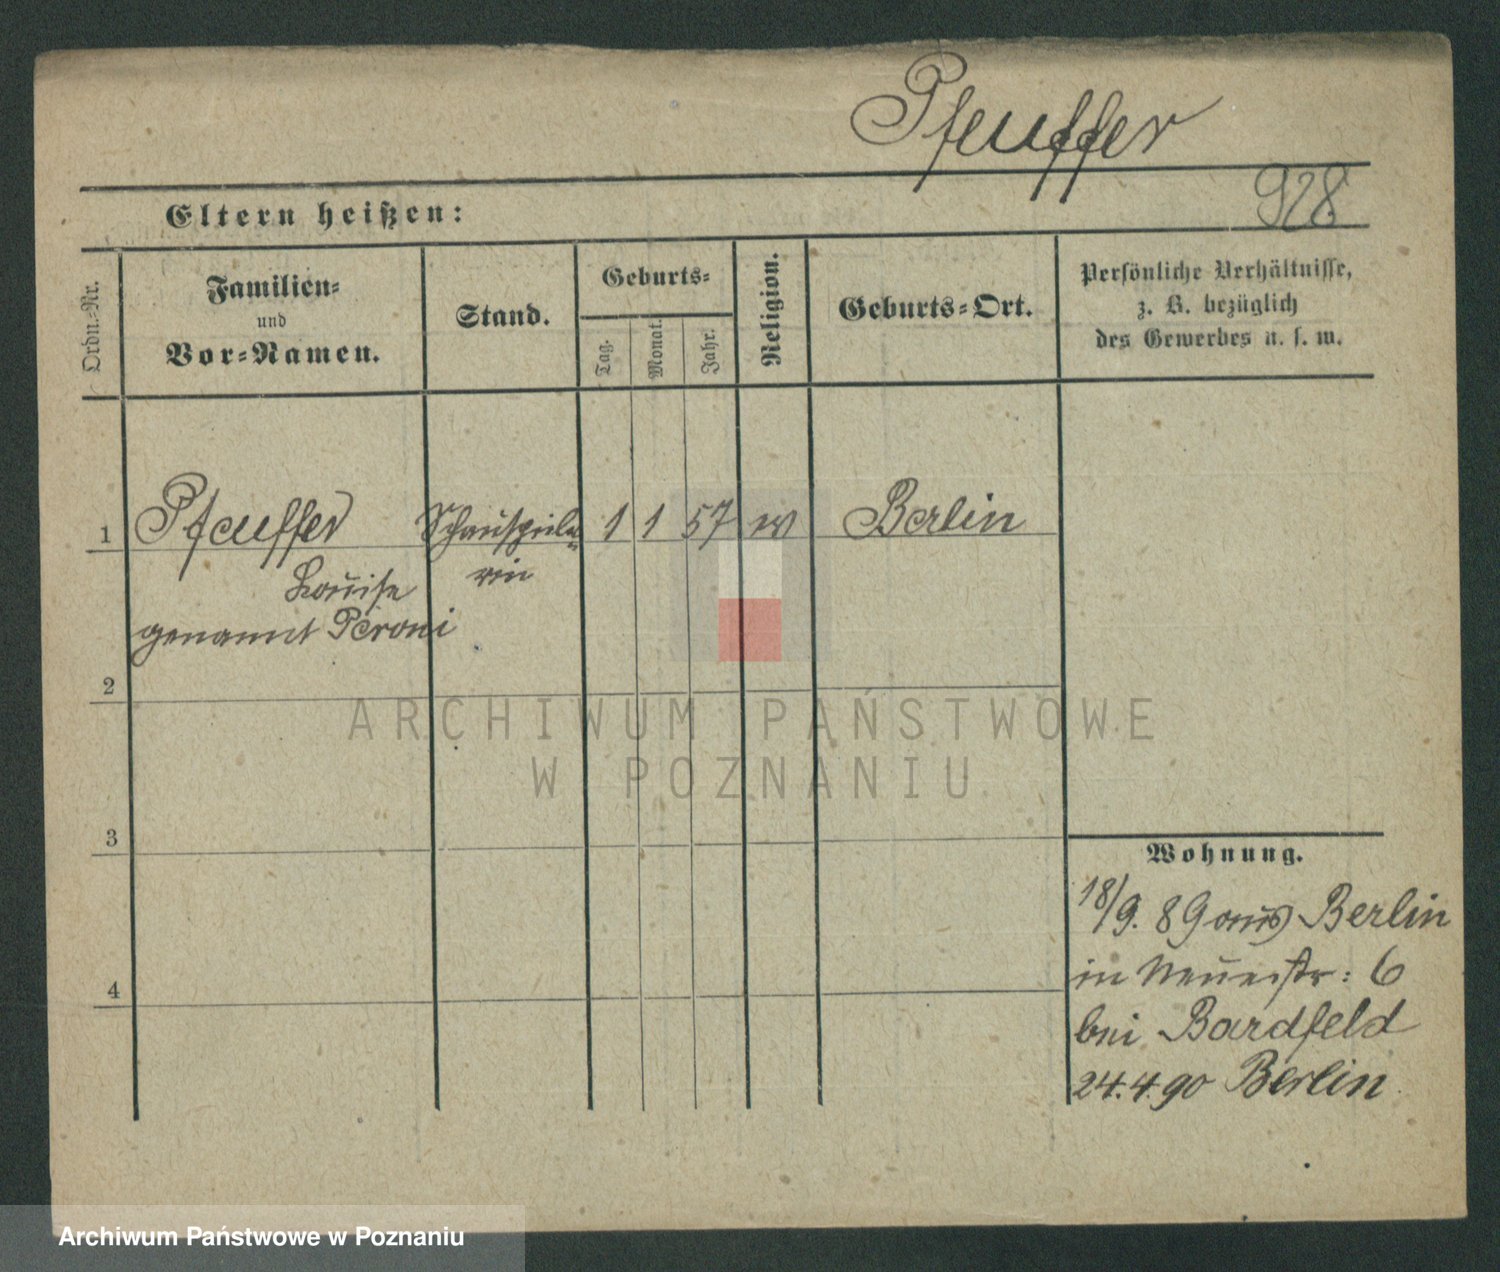 Pfeuffer
928
Eltern heißen:
Ordn.-Nr.
Familien-
und
Vor-Namen.
Stand.
Geburts-
Tag.
Monat.
Jahr.
Religion.
Geburts-Ort.
Persönliche Verhältnisse,
z. B. bezüglich
des Gewerbes u. s. w.
1 Pfeuffer Schauspiele= 1 1 57 Berlin
Louise rin
genannt Peroni
2
ARCHIWUM PAŃSTWOWE
W POZNANIU
3
Wohnung.
18/9. 89 aus Berlin
in Neuestr: 6
4
bei Bardfeld
24.4.90 Berlin
Archiwum Państwowe w Poznaniu